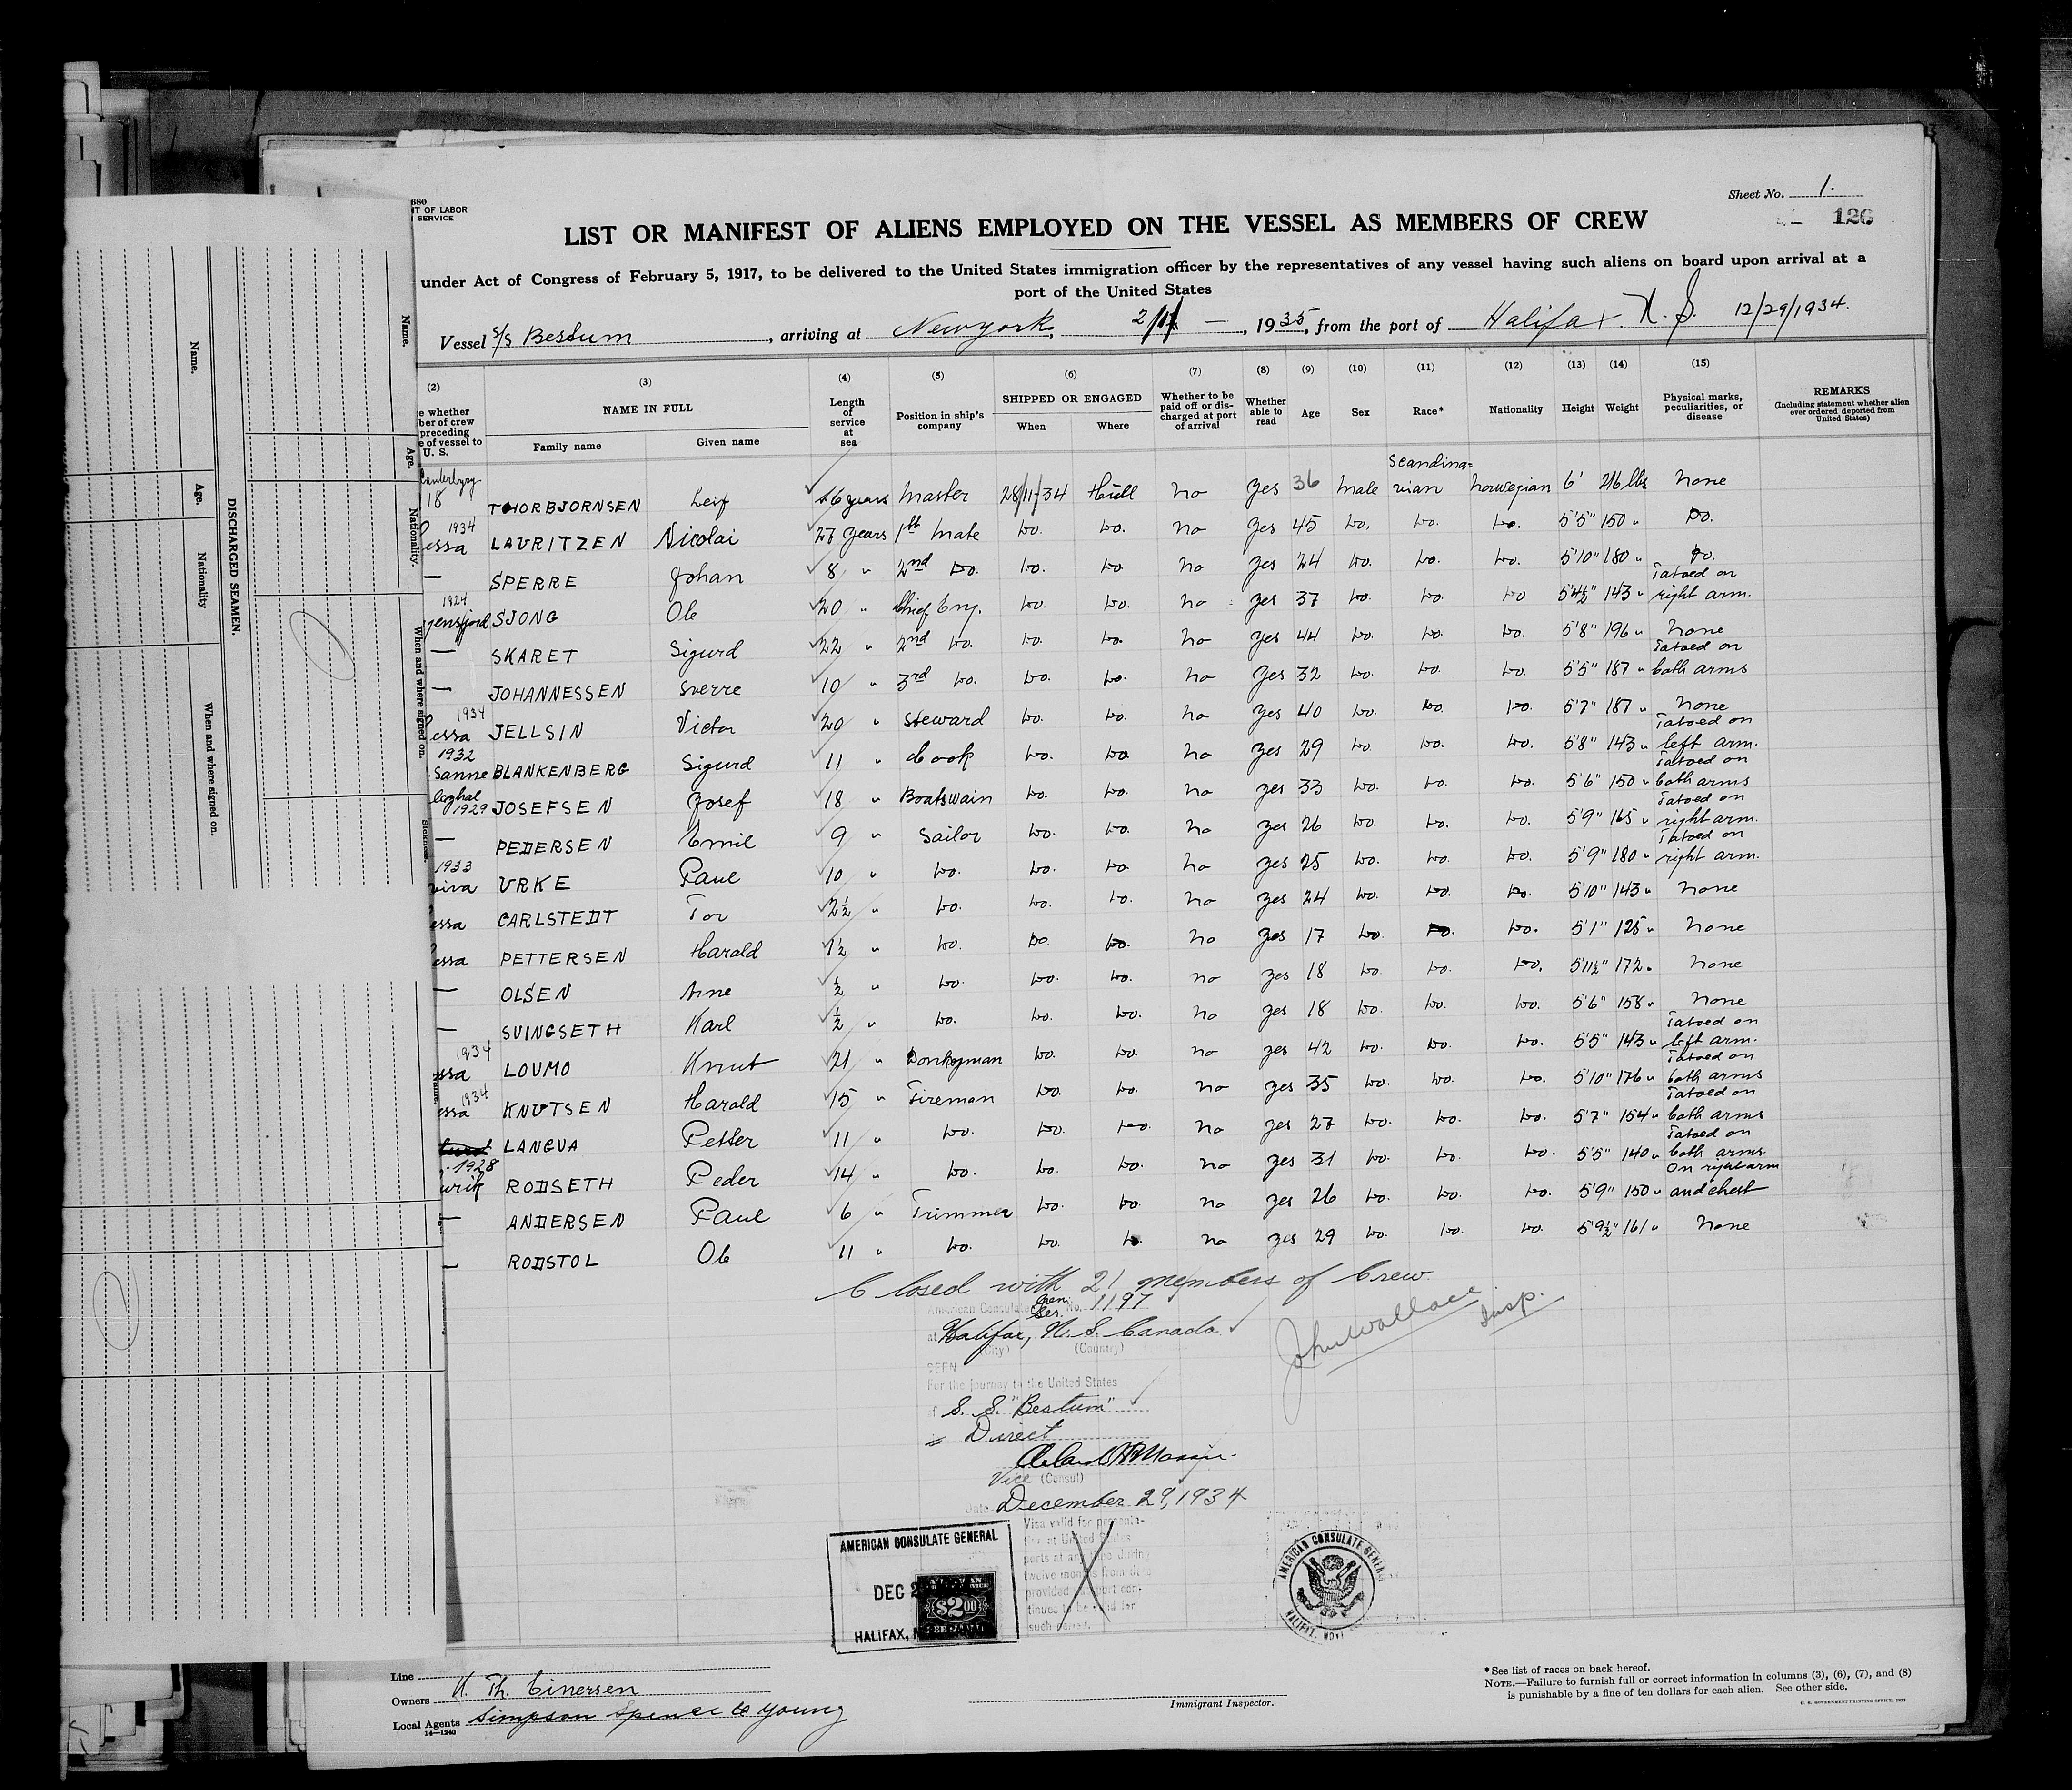 Sheet No. 1.
126
680
T OF LABOR
SERVICE
LIST OR MANIFEST OF ALIENS EMPLOYED ON THE VESSEL AS MEMBERS OF CREW
under Act of Congress of February 5, 1917, to be delivered to the United States immigration officer by the representatives of any vessel having such aliens on board upon arrival at a
port of the United States
Vessel S/s Bestum, arriving at Newyork, 1935, from the port of Halifax. N. S. 12/29/1934.
(2) (3) (4) (5) (6) (7) (8) (9) (10) (11) (12) (13) (14) (15)
NAME IN FULL
Family name Given name
Length of service at sea
Position in ship's company
SHIPPED OR ENGAGED
When Where
Whether to be paid off or discharged at port of arrival
Whether able to read
Age Sex Race* Nationality Height Weight
Physical marks, peculiarities, or disease
REMARKS
(Including statement whether alien ever ordered deported from United States)
18 THORBJORNSEN Leif 16 years Master 28/11/34 Hull no yes 36 male Scandina= vian norwegian 6' 216 lbs None
1934 essa LAURITZEN Nicolai 27 years 1st mate do. do. no yes 45 do. do. do. 5'5" 150 " Do.
— SPERRE Johan 8 " 2nd Do. do. do no yes 24 do. do. do. 5'10" 180 " Do.
1924 gensfjord SJONG Ole 20 " Chief Eng. do. do. no yes 37 do. do. do 5'4½" 143 " Tatoed on right arm.
— SKARET Sigurd 22 " 2nd do. do. do. no yes 44 do. do. do. 5'8" 196 " None
— JOHANNESSEN Sverre 10 " 3rd do. do. do. no yes 32 do. do. do. 5'5" 187 " Tatoed on both arms
1934 essa JELLSIN Victor 20 " Steward do. do. no yes 40 do. do. do. 5'7" 187 " None
1932 Sanne BLANKENBERG Sigurd 11 " Cook do. do no yes 29 do. do. do. 5'8" 143 " Tatoed on left arm.
1929 JOSEFSEN Josef 18 " Boatswain do. do. no yes 33 do. do. do. 5'6" 150 " Tatoed on both arms
— PEDERSEN Emil 9 " Sailor do. do. no yes 26 do. do. do. 5'9" 165 " Tatoed on right arm.
1933 viva URKE Paul 10 " do. do. do. no yes 25 do. do. do. 5'9" 180 " Tatoed on right arm.
essa CARLSTEDT Tor 2½ " do. do. do. no yes 24 do. do. do. 5'10" 143 " None
essa PETTERSEN Harald 1½ " do. do. do. no yes 17 do. do. do. 5'1" 125 " None
— OLSEN Arne ½ " do. do. do. no yes 18 do. do. do. 5'11½" 172 " None
— SVINGSETH Karl ½ " do. do. do. no yes 18 do. do. do. 5'6" 158 " None
1934 ssa LOVMO Knut 21 " Donkeyman do. do. no yes 42 do. do. do. 5'5" 143 " Tatoed on left arm.
1934 essa KNUTSEN Harald 15 " Fireman do. do. no yes 35 do. do. do. 5'10" 176 " Tatoed on both arms
LANGVA Petter 11 " do. do. do. no yes 27 do. do. do. 5'7" 154 " Tatoed on both arms
1928 RODSETH Peder 14 " do. do. do. no yes 31 do. do. do. 5'5" 140 " Tatoed on both arms.
— ANDERSEN Paul 6 " Trimmer do. do. no yes 26 do. do. do. 5'9" 150 " On right arm and chest
— RODSTOL Ole 11 " do. do. do. no yes 29 do. do. do. 5'9½" 161 " None
Closed with 21 members of Crew.
American Consulate Gen. Ser. No. 1197
at Halifax, N. S. Canada
(City) (Country)
John Wallace Insp.
SEEN
For the journey to the United States
of S. S. "Bestum"
Direct
Vice (Consul)
Date December 29, 1934
Visa valid for presenta-
tion at United States
ports at any time during
twelve months from date
provided passport con-
tinues to be valid for
such period.
AMERICAN CONSULATE GENERAL
DEC 2
$2.00
HALIFAX, N
AMERICAN CONSULATE GENERAL
HALIFAX, NOV
Line
Owners
Local Agents Simpson Spence & Young
14—1240
Immigrant Inspector.
*See list of races on back hereof.
NOTE.—Failure to furnish full or correct information in columns (3), (6), (7), and (8)
is punishable by a fine of ten dollars for each alien. See other side.
U. S. GOVERNMENT PRINTING OFFICE: 1933
DISCHARGED SEAMEN.
Name. Age. Nationality When and where signed on.
Name. Age. Nationality. When and where signed on.